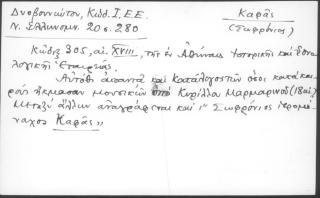 Δυοβουνιώτου, Κώδ. Ι.Ε.Ε.
Καρᾶς
Ν. Ἑλληνομν. 20 σ. 280
(Σωφρόνιος)
Κῶδιξ 305, αἰ. XVIII, τῆς ἐν Ἀθήναις ἱστορικῆς καὶ ἐθνο
λογικῆς Ἑταιρείας.
Αὐτόθι ἀπαντᾷ καὶ κατάλογος τῶν ὅσοι κατὰ και
ροὺς ἤκμασαν μουσικῶν ὑπὸ Κυρίλλου Μαρμαρηνοῦ (18 αἰ.)
Μεταξὺ ἄλλων ἀναγράφεται καὶ "Σωφρόνιος ἱερομό
ναχος Καρᾶς"